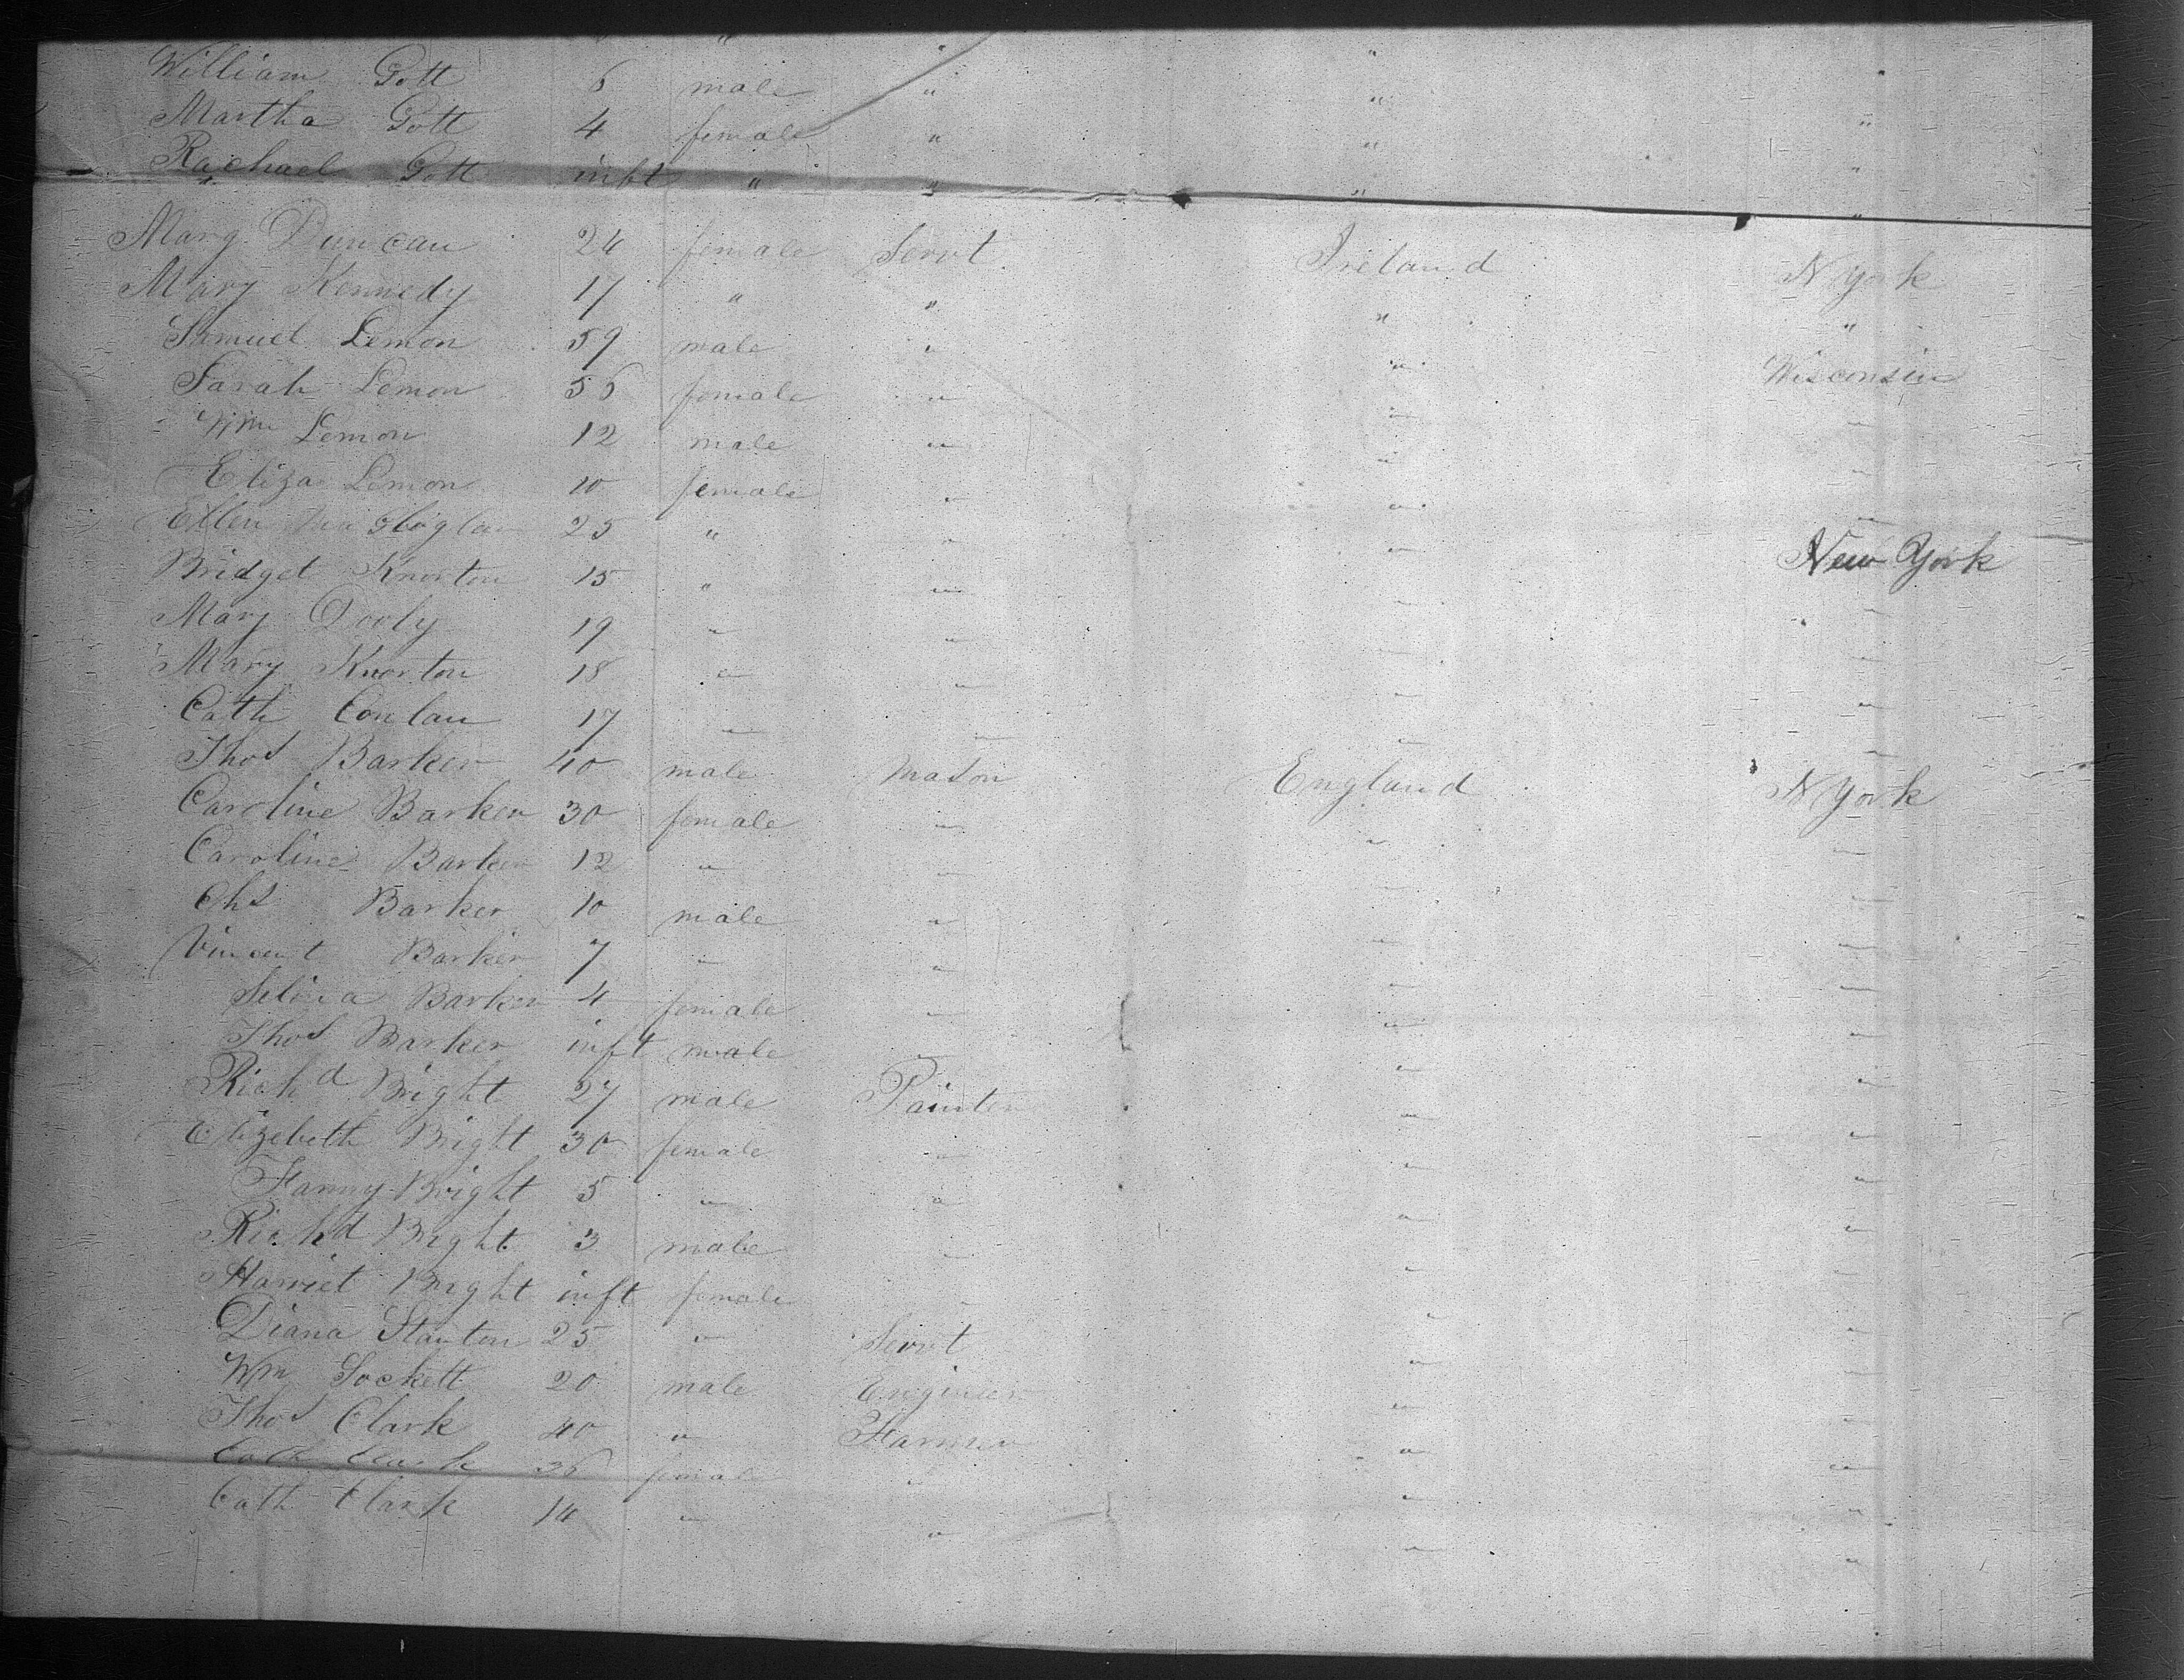 " "
William Gott 6 male " " "
Martha Gott 4 female " " "
Rachael Gott inft " " " "
Mary Duncan 24 female Servt Ireland N York
Mary Kennedy 17 " " " "
Samuel Lemon 59 male " " Wisconsin
Sarah Lemon 56 female " " "
Wm Lemon 12 male " " "
Eliza Lemon 10 female " " "
Ellen 25 " " " New York
Bridget Knorton 15 " " " "
Mary Dooly 19 " " " "
Mary Knorton 18 " " " "
Cath Conlan 17 " " " "
Thos Barker 40 male Mason England N York
Caroline Barker 30 female " " "
Caroline Barker 12 " " " "
Chs Barker 10 male " " "
Vincent Barker 7 " " " "
Selina Barker 4 female " " "
Thos Barker inft male " " "
Richd Bright 27 male Painter " "
Elizebeth Bright 30 female " " "
Fanny Bright 5 " " " "
Richd Bright 3 male " " "
Harriet Bright inft female " " "
Diana Stanton 25 " Servt " "
Wm Sockett 20 male Engineer " "
Thos Clark 40 " Farmer " "
Cath Clark 36 female " " "
Cath Clark 14 " " " "